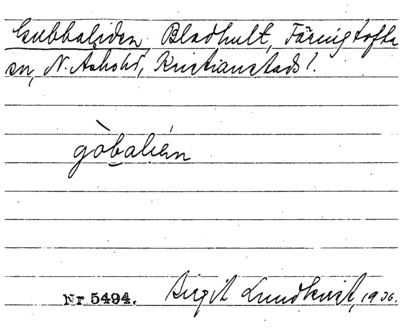 Gubbaliden Bladhult, Färingtofta
sn, N. Åsbohd, Kristianstads l.
gòbalién
Nr 5494. Birgit Lundkvist, 1936.